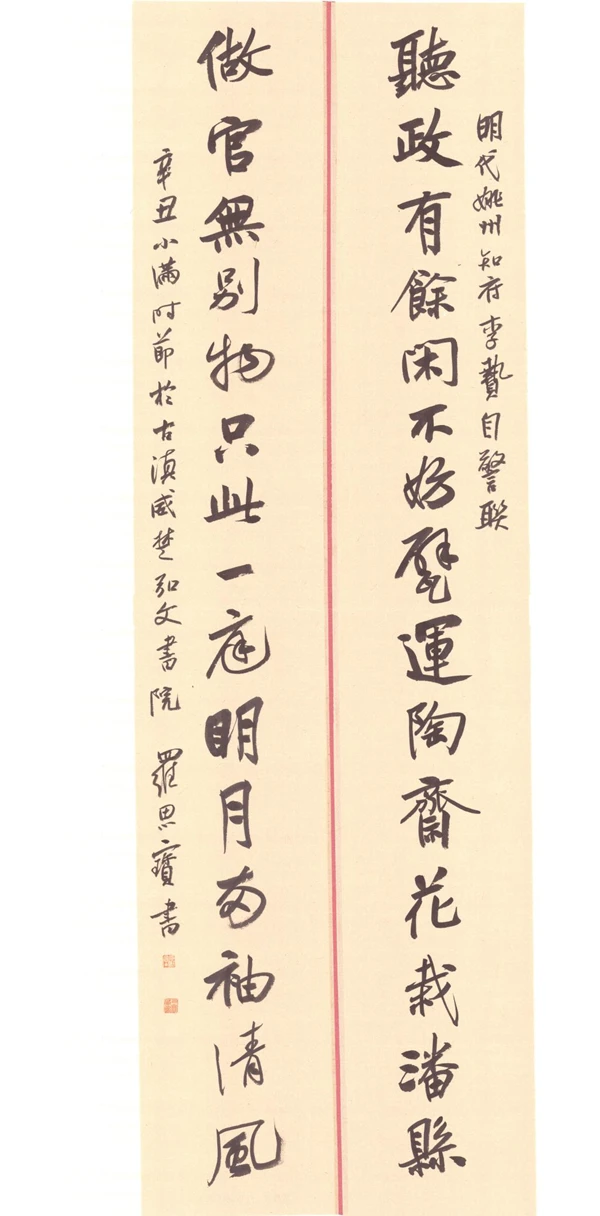 明代姚州知府李贄自警联
聽政有餘閑不妨甓運陶齋花栽潘縣
做官無別物只此一庭明月兩袖清風
辛丑小滿時節於古滇威楚弘文書院 羅思寶書